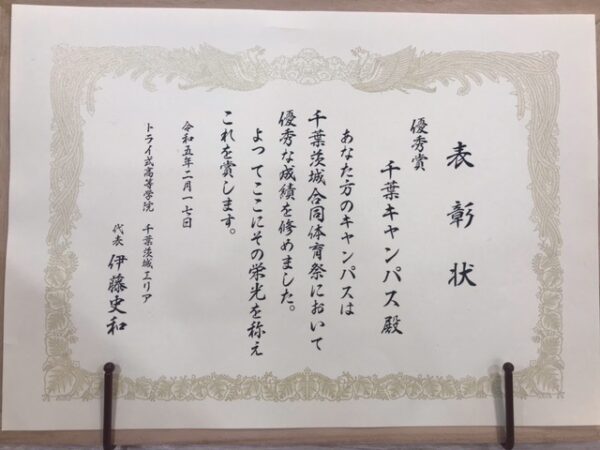 表彰状
優秀賞
千葉キャンパス殿
あなた方のキャンパスは
千葉茨城合同体育祭において
優秀な成績を修めました。
よってここにその栄光を称え
これを賞します。
令和五年二月一七日
トライ式高等学院 千葉茨城エリア
代表 伊藤史和